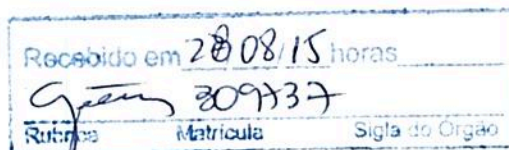 Recebido em 28/08/15 horas
309737
Rubrica Matrícula Sigla do Órgão